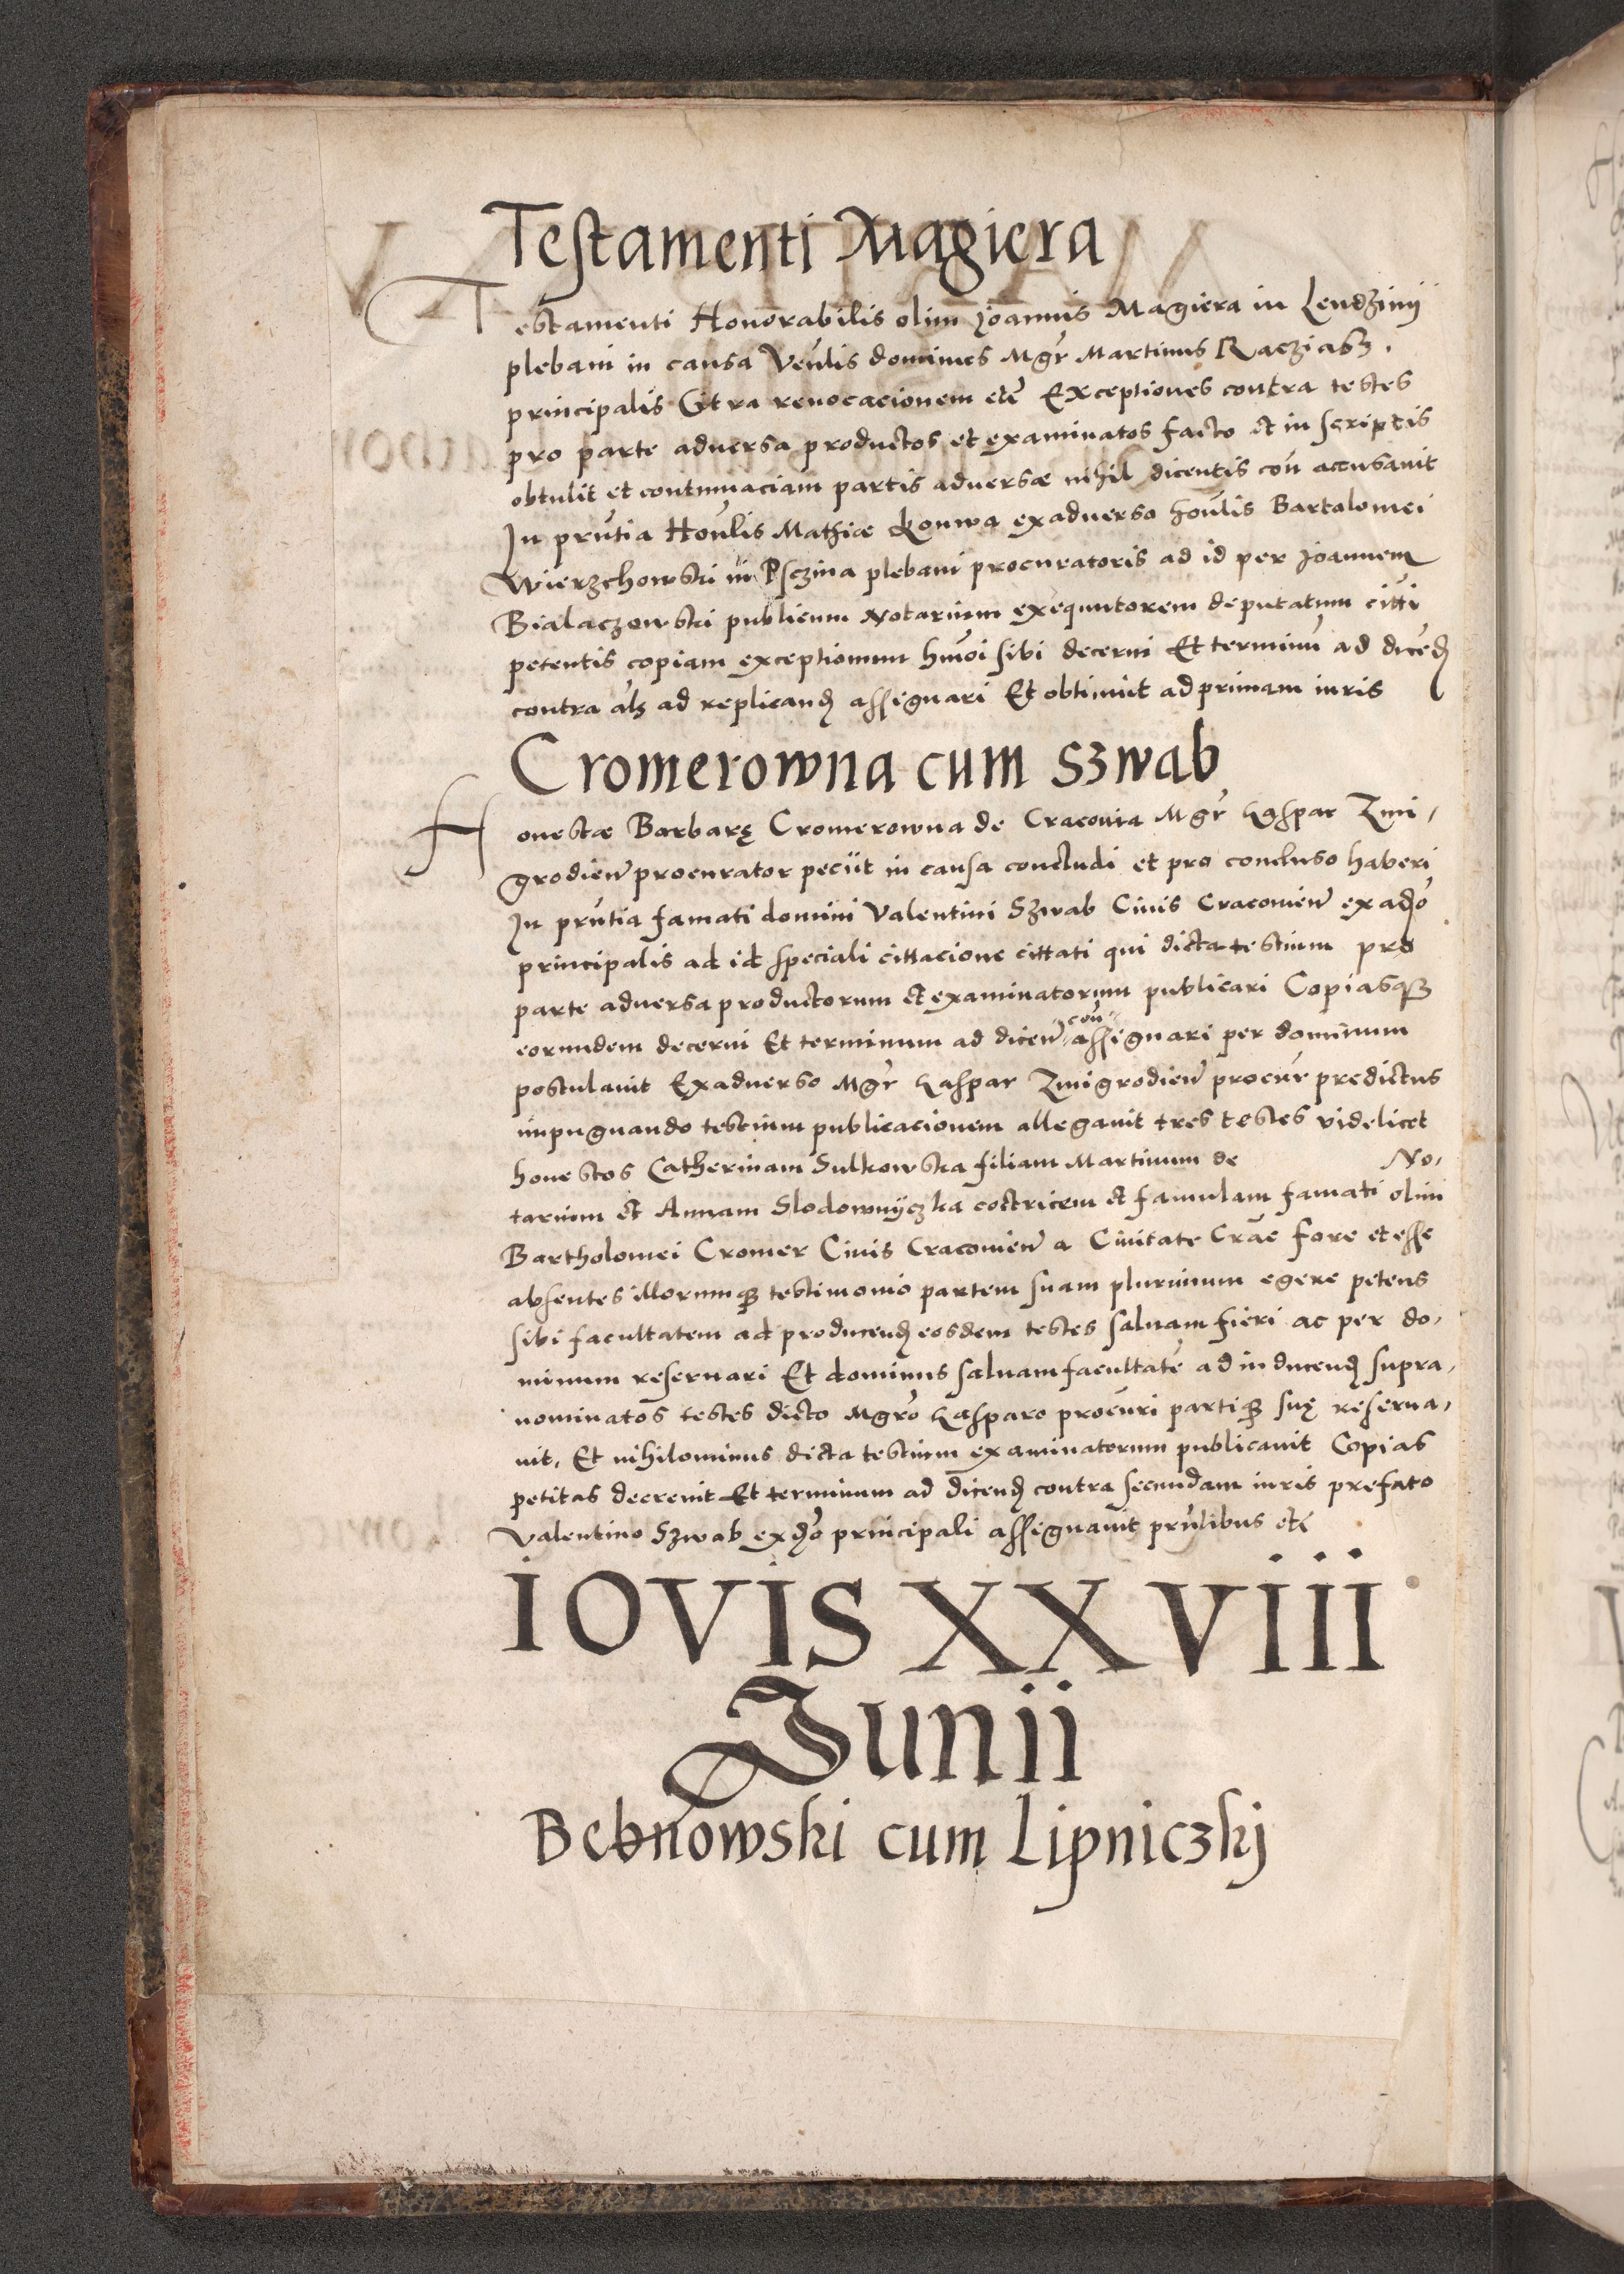 Testamenti Magiera
Testamenti Honorabilis olim Joannis Magiera in Lendzinij
plebani in causa Venlis dominus Mgr Martinus Racziasz.
principalis Citra reuocacionem etc Exceptiones contra testes
pro parte aduersa productos et examinatos facto et in scriptis
obtulit et contumaciam partis aduersæ nihil dicentis con accusauit
In pñtia Honlis Mathiæ Konwa exaduerso honlis Bartolomei
Wierzchowski in Psczina plebani procuratoris ad id per Joannem
Bialaczowski publicum Notarium exequutorem deputatum citti
petentis copiam exceptionum hmoi sibi decerni Et terminũ ad dicend
contra als ad replicand assignari Et obtinuit ad primam iuris
Cromerowna cum Szwab
Honestæ Barbarę Cromerowna de Cracouia Mgr Caspar Zmi-
grodien procurator peciit in causa concludi et pro concluso haberi
In pñtia famati domini Valentini Szwab Ciuis Cracouien ex ado
principalis ad id speciali cittacione cittati qui dicta testium pro
parte aduersa productorum et examinatorum publicari Copiasq3
eorundem decerni Et terminum ad dicen con assignari per dominum
postulauit Exaduerso Mgr Caspar Zmigrodien procur predictus
impugnando testium publicacionem allegauit tres testes videlicet
honestos Catherinam Sulkowska filiam Martinum de No-
tarium et Annam Slodownyczka coctricem et famulam famati olim
Bartholomei Cromer Ciuis Cracouien a Ciuitate Crac fore et esse
absentes illorumq3 testimonio partem suam plurimum egere petens
sibi facultatem ad producend eosdem testes saluam fieri ac per do-
minum reseruari Et dominus saluam facultatẽ ad inducend supra-
nominatos testes dicto Mgro Casparo procuri partiq3 suę reserua-
uit, Et nihilominus dicta testium examinatorum publicauit Copias
petitas decreuit Et terminum ad dicend contra secundam iuris prefato
Valentino Szwab ex ado principali assignauit pñtibus etc
IOVIS XXVIII
Junii
Bebnowski cum Lipniczkj